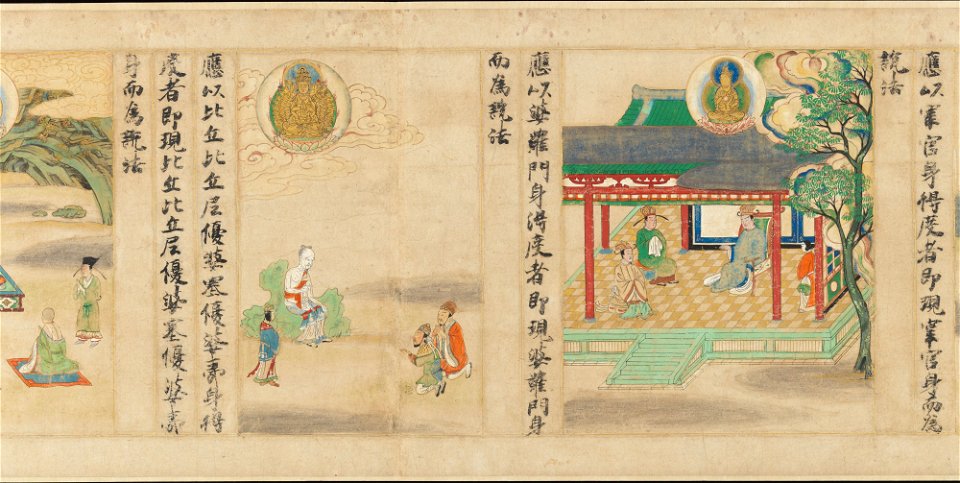 應以宰官身得度者即現宰官身而為
說法
應以婆羅門身得度者即現婆羅門身
而為說法
應以比丘比丘尼優婆塞優婆夷身得
度者即現比丘比丘尼優婆塞優婆夷
身而為說法